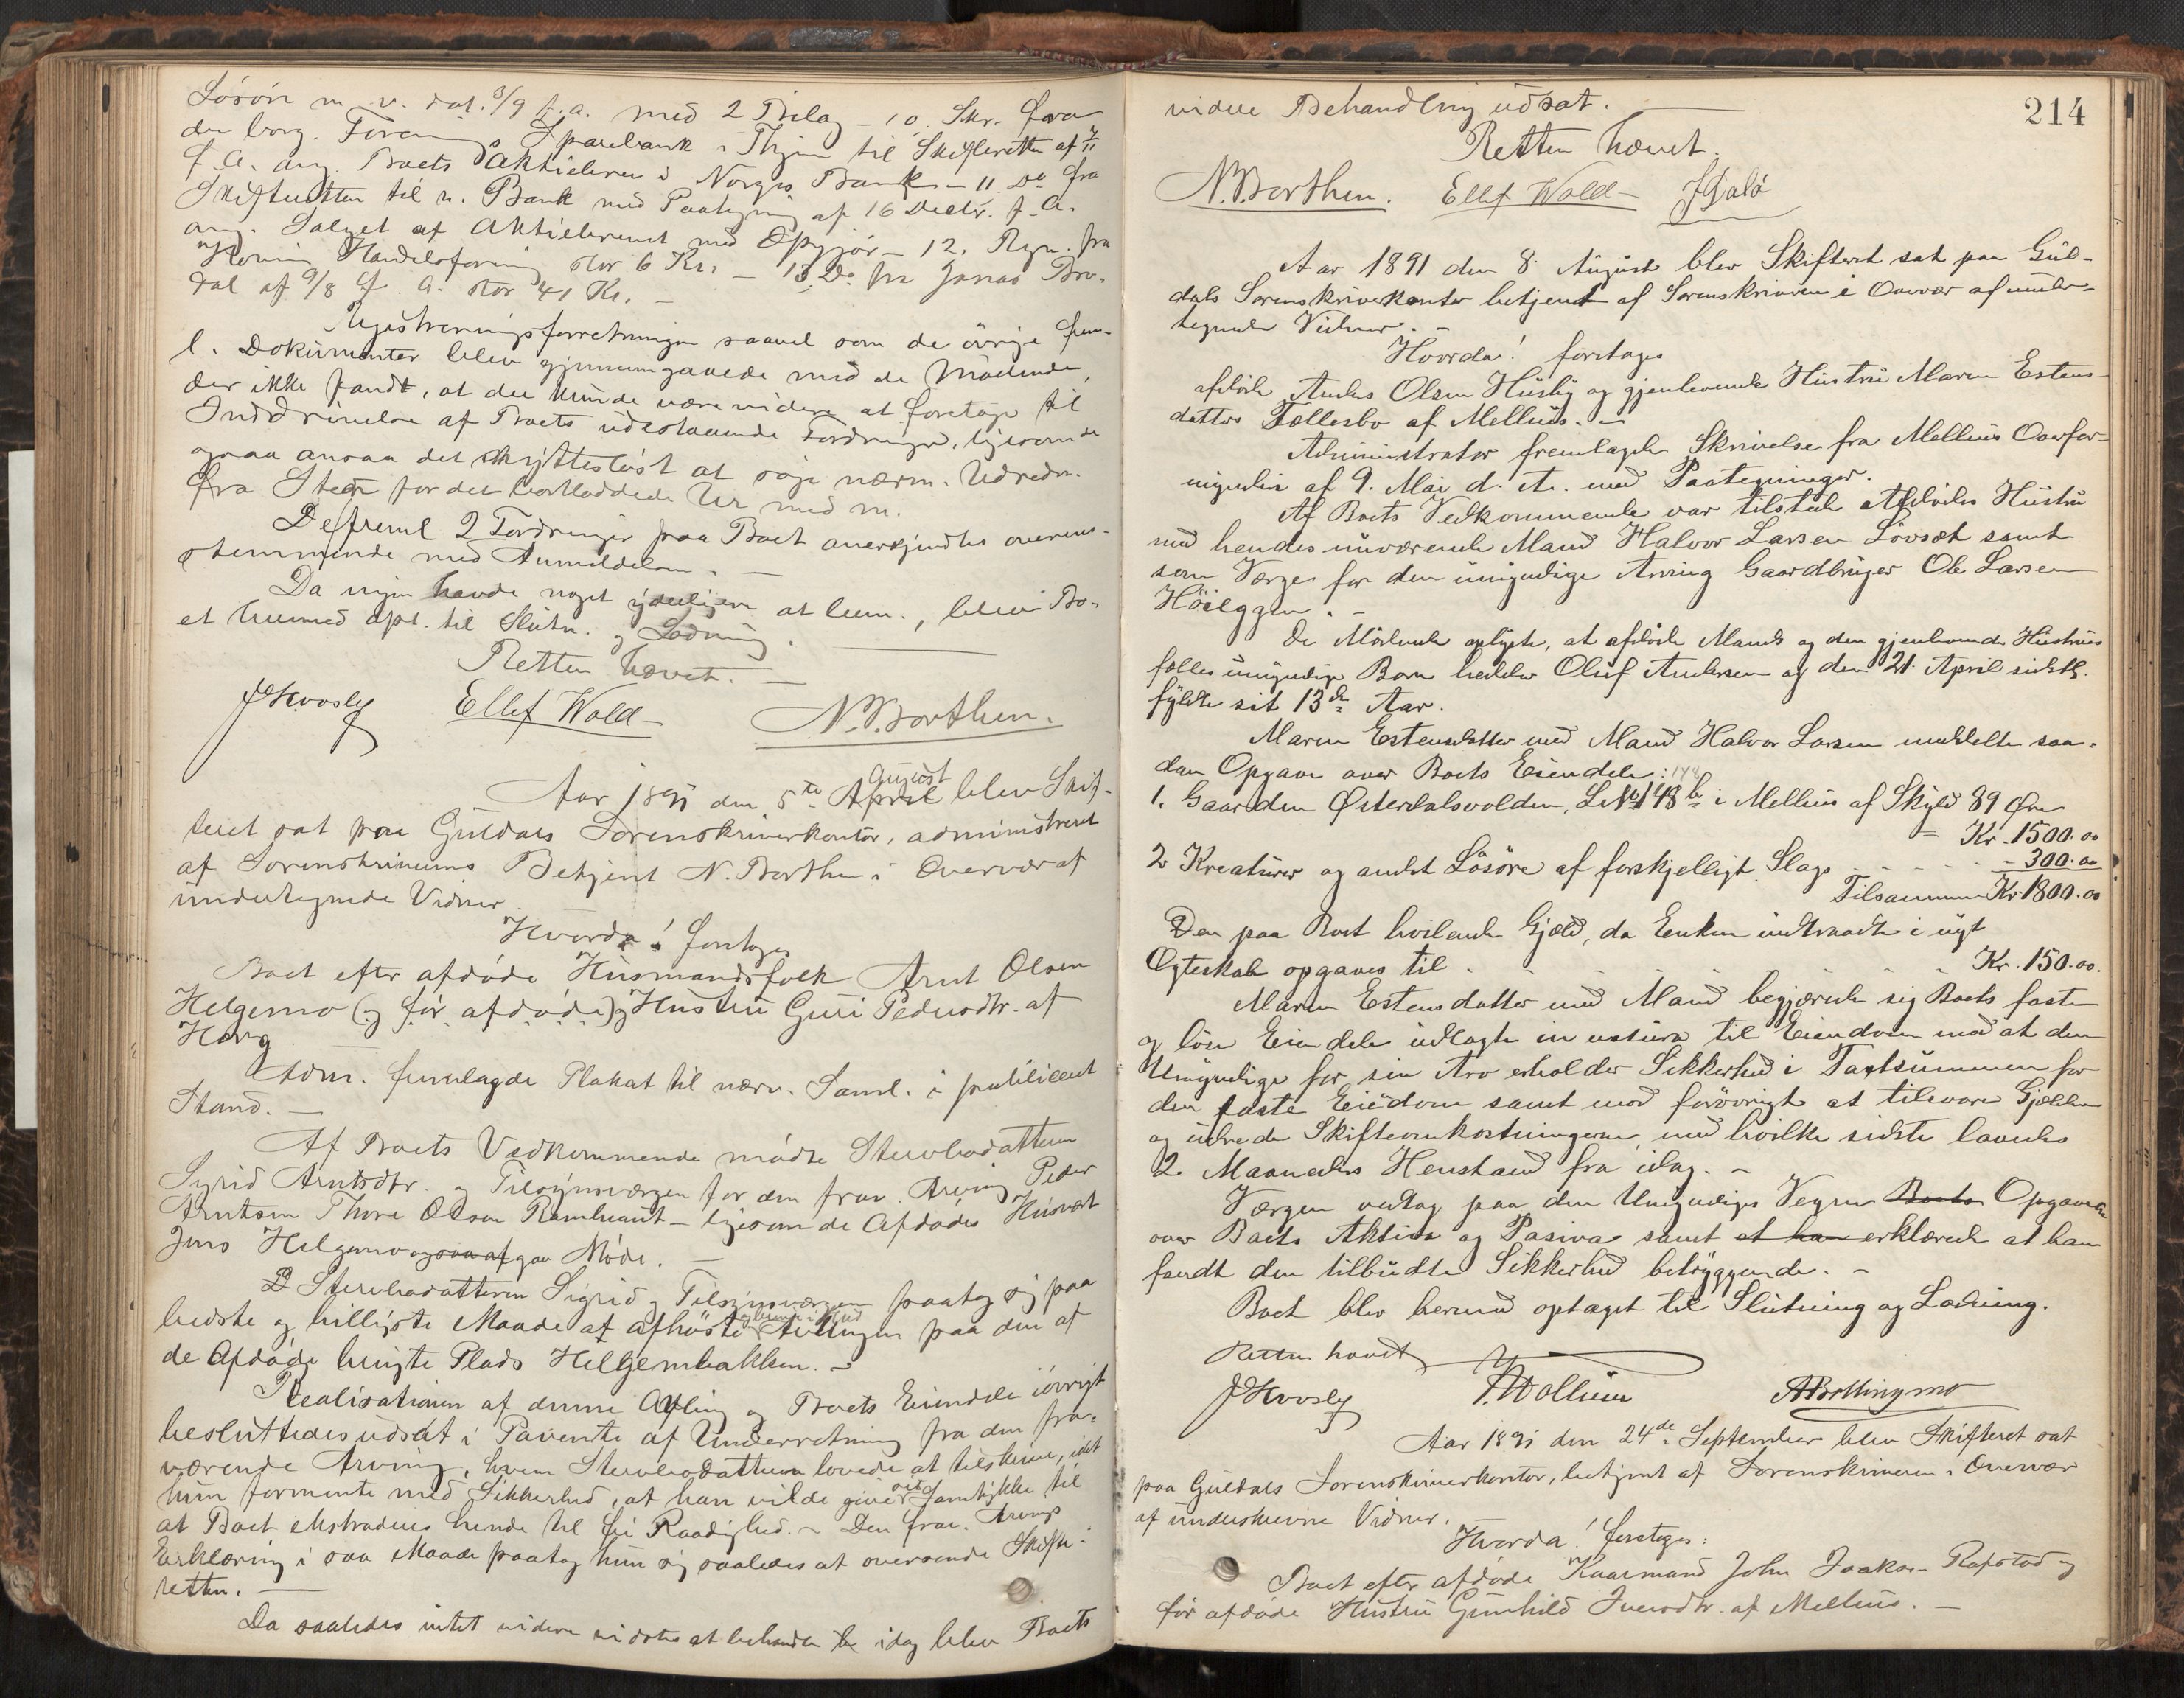 Lösöre m. v. dat. 3/9 f. a. med 2 Bilag – 10. Skr. fra
den borg. Forenings Sparebank i Thjem til Skifteretten af
f. A. ang. Boets Aktiebrev i Norges Bank – 11. Do fra
Skifteretten til n. Bank med Paategning af 16 Decbr. f. A.
ang. Salget af Aktiebrevet med Opgjör – 12. Regn. fra
Handelsforening stor 6 Kr. – 13. Do fra Jonas Bro-
dal af 9/8 f. A. stor 41 Kr. –
Registreringsforretningen saavel som de övrige frem-
l. Dokumenter blev gjennemgaaede med de Mödende,
der ikke fandt, at der kunde være videre at foretage til
Inddrivelse af Boets udestaaende Fordringer, ligesom de
ogsaa ansaa det nyttelöst at söge nærm. Udredn.
fra Steen for det bortloddede Ur med m.
De freml 2 Fordringer paa Boet anerkjendtes overens-
stemmende med Anmeldelsen. –
Da ingen havde noget yderligere at bem., blev Bo-
et hermed opt. til Slutn. og Lodning.
Retten hævet. –
J Hovsly Ellef Wold N. Borthen.
Aar 1891 den 5te April August blev Skif-
teret sat paa Guldals Sorenskriverkontor, administreret
af Sorenskriverens Betjent N. Borthen i Overvær af
undertegnede Vidner
Hvorda! foretoges
Boet efter afdöde Husmandsfolk Arnt Olsen
Helgemo (og för afdöde) og Hustru Guri Pedersdtr. af
Horg
Adm. fremlagde Plakat til nærv. Saml. i publiceret
Stand. –
Af Boets Vedkommende mödte Stervbodatteren
Sigrid Arntsdtr. og Tilsynsværgen for den frav. Arving Peder
Arntsen Thore Olsen – ligesom de Afdödes Husvært
Jens Helgemo ogsaa af gav Möde. –
Stervbodatteren Sigrid og Tilsynsværgen paatog sig paa
bedste og billigste Maade at afhöste Avlingen paa den af
de Afdöde brugte Plads Helgembakken. –
Realisationen af denne Avling og Boets Eiendele iövrigt
besluttedes udsat i Paavente af Underretning fra den fra-
værende Arving, hvem Stervbodatteren lovede at tilskrive, idet
hun formente med Sikkerhed, at han vilde give sit Samtykke til
at Boet extraderes hende til fri Raadighed. – Den frav. Arvings
Erklæring i saa Maade paatog hun sig saaledes at oversende Skifte-
retten. –
Da saaledes intet videre vidstes at behandle idag blev Boets
214
videre Behandling udsat. –
Retten hævet.
N. Borthen. Ellef Wold J Galö
Aar 1891 den 8. August blev Skifteret sat paa Gul-
dals Sorenskriverkontor betjent af Sorenskriveren i Overvær af under-
tegnede Vidner. –
Hvorda! foretages
afdöde Anders Olsen Husby og gjenlevende Hustru Maren Estens-
datters Fællesbo af Melhus. –
Administrator fremlagde Skrivelse fra Melhus Overfor-
mynderi af 9. Mai d. A. med Paategninger.
Af Boets Vedkommende var tilstede Afdödes Hustru
med hendes nuværende Mand Halvor Larsen Lövset samt
som Værge for den umyndige Arving Gaardbruger Ole Larsen
Höieggen. –
De Mödende oplyste, at afdöde Mands og den gjenlevende Hustrues
fælles umyndige Barn hedder Oluf Andersen og den 21. April sidstl.
fyldte sit 13de Aar.
Maren Estensdatter med Mand Halvor Larsen meddelte saa-
dan Opgave over Boets Eiendele: 148
1. Gaarden Østerdalsvolden, LNo 148 b i Melhus af Skyld 89 Øre
– Kr. 1500.00
2 Kreaturer og andet Lösöre af forskjelligt Slags – – – – 300.00
Tilsammen Kr 1800.00
Den paa Boet hvilende Gjæld, da Enken indtraadte i nyt
Ægteskab opgaves til – – – – – Kr. 150.00.
Maren Estensdatter med Mand begjærede sig Boets faste
og löse Eiendele udlagte in natura til Eiendom mod at den
Umyndige for sin Arv erholder Sikkerhed i Taxtsummen for
den faste Eiedom samt mod forövrigt at tilsvare Gjælden
og udrede Skifteomkostningerne, med hvilke sidste lovedes
2 Maaneders Henstand fra idag. –
Værgen vedtog paa den Umyndiges Vegne Boets Opgaven
over Boets Aktiva og Pasiva samt at han erklærede at han
fandt den tilbudte Sikkerhed betryggende. –
Boet blev hermed optaget til Slutning og Lodning.
Retten hævet
J Hovsly
Aar 1891 den 24de September blev Skifteret sat
paa Guldals Sorenskriverkontor, betjent af Sorenskriveren i Overvær
af underskrevne Vidner.
Hvorda! foretoges:
Boet efter afdöde Kaarmand John Isaksen Rofstad og
för afdöde Hustru Gunhild Iversdtr. af Melhus. –